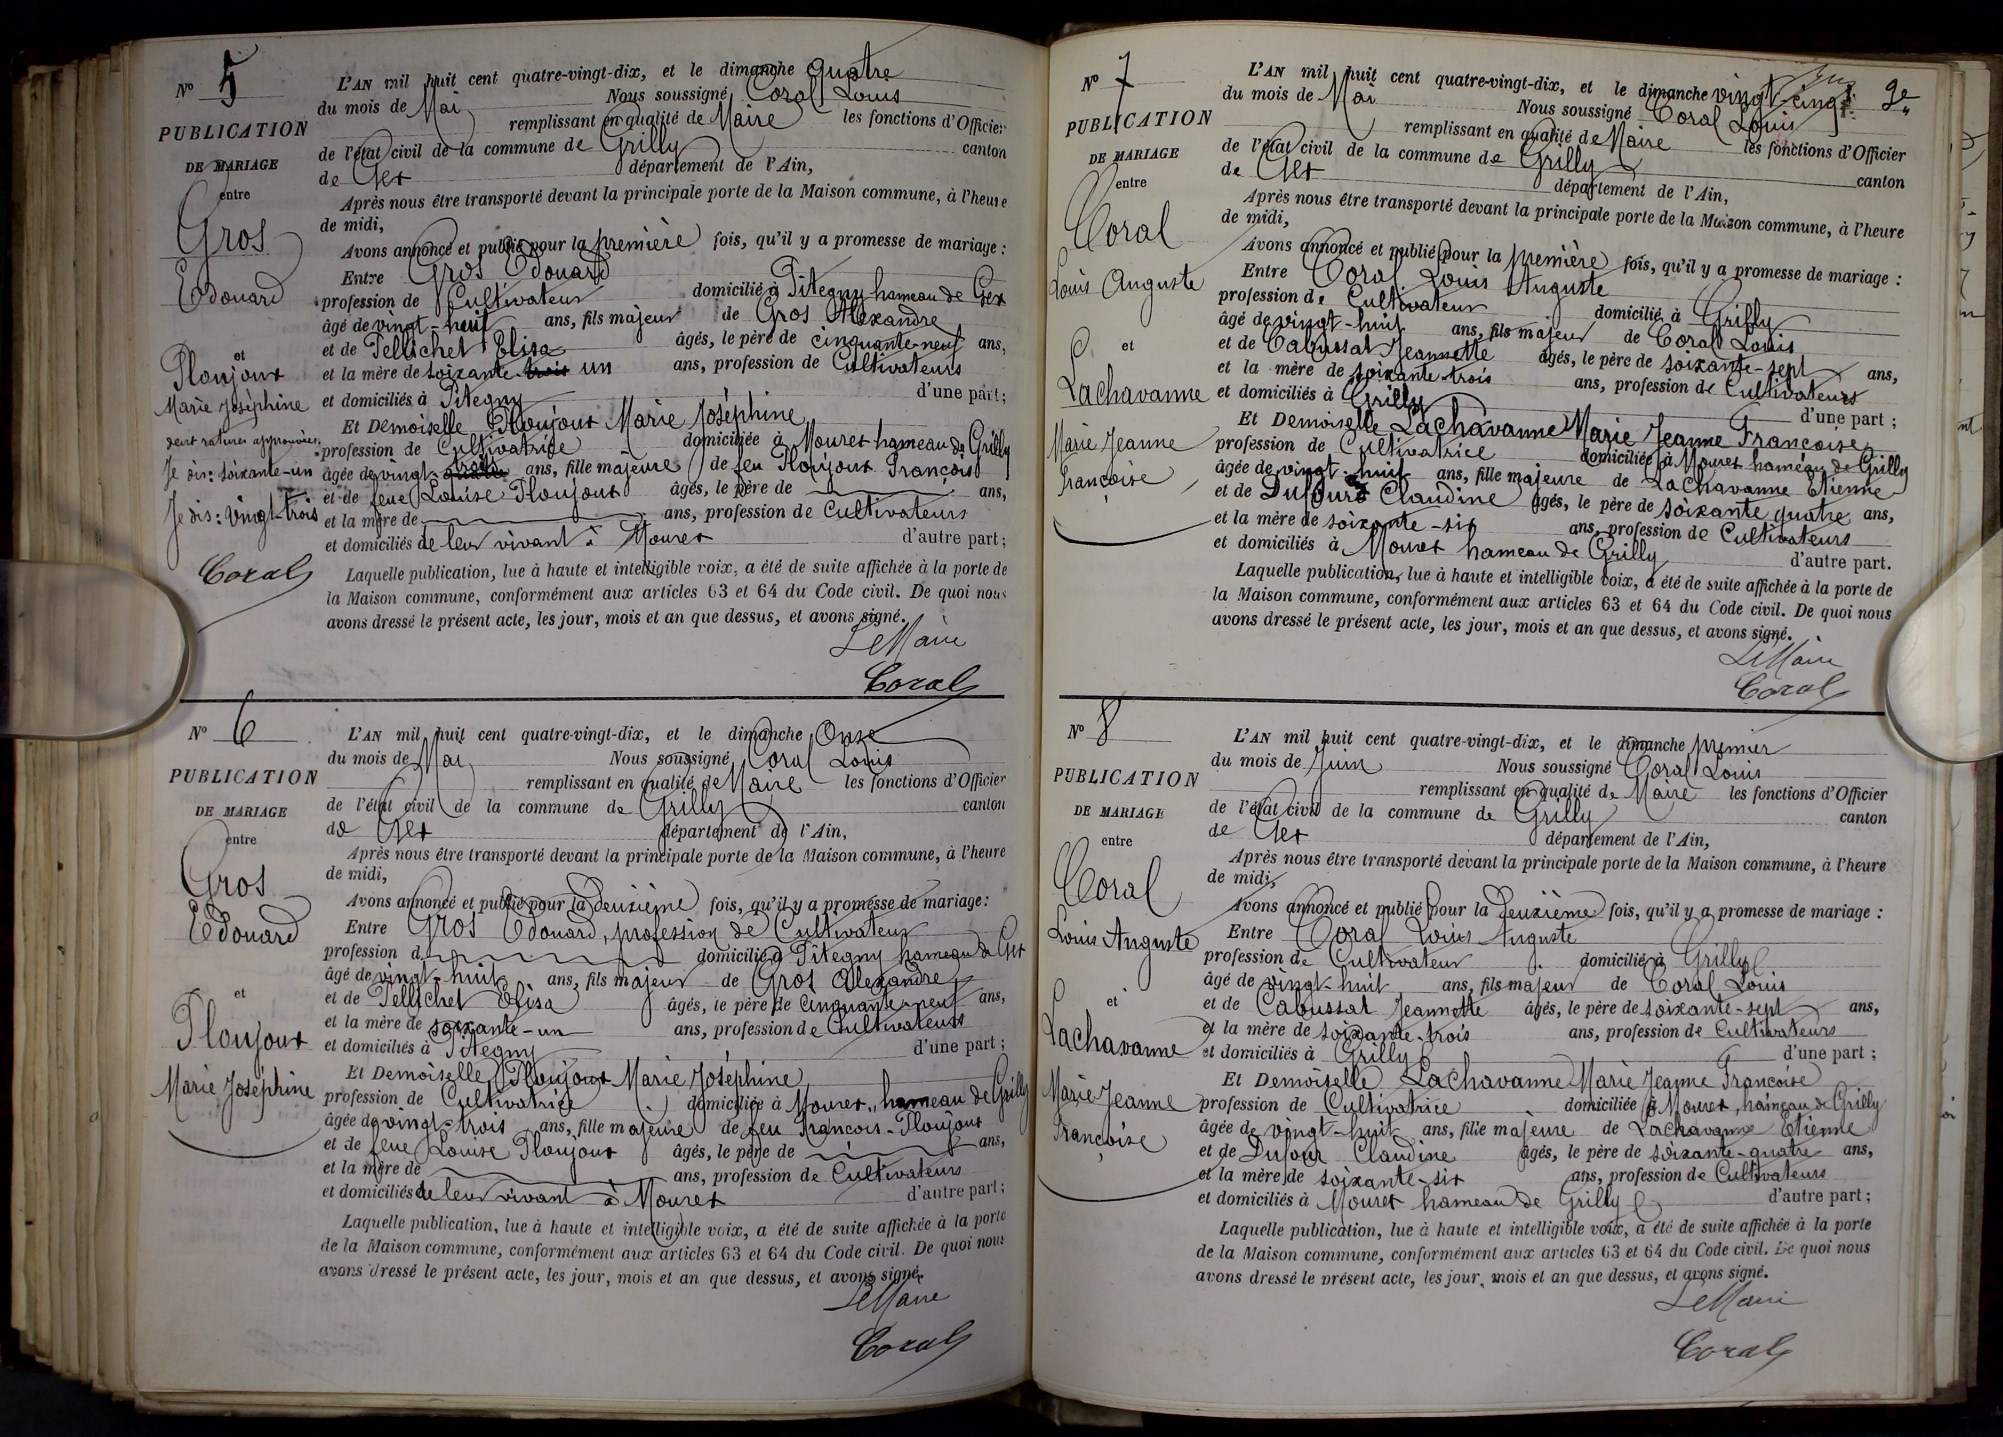 N° 5
PUBLICATION
DE MARIAGE
entre
Gros
Edouard
et
Ploujoux
Marie Joséphine
deux ratures approuvées
Je dis: soixante-un
Je dis: vingt-trois
Coral
L'AN mil huit cent quatre-vingt-dix, et le dimanche quatre
du mois de Mai Nous soussigné Coral Louis
remplissant en qualité de Maire les fonctions d'Officier
de l'état civil de la commune de Grilly canton
de Gex département de l'Ain,
Après nous être transporté devant la principale porte de la Maison commune, à l'heure
de midi,
Avons annoncé et publié pour la première fois, qu'il y a promesse de mariage :
Entre Gros Edouard
profession de Cultivateur domicilié à Pitegny hameau de Gex
âgé de vingt-huit ans, fils majeur de Gros Alexandre
et de Pellichet Elisa âgés, le père de cinquante-neuf ans,
et la mère de soixante trois un ans, profession de Cultivateurs
et domiciliés à Pitegny d'une part;
Et Demoiselle Ploujoux Marie Joséphine
profession de Cultivatrice domiciliée à Mourex hameau de Grilly
âgée de vingt trois ans, fille majeure de feu Ploujoux François
et de feue Louise Ploujoux âgés, le père de ans,
et la mère de ans, profession de Cultivateurs
et domiciliés de leur vivant à Mourex d'autre part;
Laquelle publication, lue à haute et intelligible voix, a été de suite affichée à la porte de
la Maison commune, conformément aux articles 63 et 64 du Code civil. De quoi nous
avons dressé le présent acte, les jour, mois et an que dessus, et avons signé.
Le Maire
Coral
N° 6
PUBLICATION
DE MARIAGE
entre
Gros
Edouard
et
Ploujoux
Marie Joséphine
L'AN mil huit cent quatre-vingt-dix, et le dimanche Onze
du mois de Mai Nous soussigné Coral Louis
remplissant en qualité de Maire les fonctions d'Officier
de l'état civil de la commune de Grilly canton
de Gex département de l'Ain,
Après nous être transporté devant la principale porte de la Maison commune, à l'heure
de midi,
Avons annoncé et publié pour la deuxième fois, qu'il y a promesse de mariage:
Entre Gros Edouard, profession de Cultivateur
profession d domicilié à Pitegny hameau de Gex
âgé de vingt-huit ans, fils majeur de Gros Alexandre
et de Pellichet Elisa âgés, le père de cinquante-neuf ans,
et la mère de soixante-un ans, profession de Cultivateurs
et domiciliés à Pitegny d'une part;
Et Demoiselle Ploujoux Marie Joséphine
profession de Cultivatrice domiciliée à Mourex, hameau de Grilly
âgée de vingt-trois ans, fille majeure de feu François-Ploujoux
et de feue Louise Ploujoux âgés, le père de ans,
et la mère de ans, profession de Cultivateurs
et domiciliés de leur vivant à Mourex d'autre part;
Laquelle publication, lue à haute et intelligible voix, a été de suite affichée à la porte
de la Maison commune, conformément aux articles 63 et 64 du Code civil. De quoi nous
avons dressé le présent acte, les jour, mois et an que dessus, et avons signé.
Le Maire
Coral
N° 7
PUBLICATION
DE MARIAGE
entre
Coral
Louis Auguste
et
Lachavanne
Marie Jeanne
Françoise
L'AN mil huit cent quatre-vingt-dix, et le dimanche vingt-cinq
du mois de Mai Nous soussigné Coral Louis
remplissant en qualité de Maire les fonctions d'Officier
de l'état civil de la commune de Grilly
de Gex canton
département de l'Ain,
Après nous être transporté devant la principale porte de la Maison commune, à l'heure
de midi,
Avons annoncé et publié pour la première fois, qu'il y a promesse de mariage :
Entre Coral Louis Auguste
profession de Cultivateur domicilié à Grilly
âgé de vingt-huit ans, fils majeur de Coral Louis
et de Cabussat Jeannette âgés, le père de soixante-sept ans,
et la mère de soixante-trois ans, profession de Cultivateurs
et domiciliés à Grilly d'une part ;
Et Demoiselle Lachavanne Marie Jeanne Françoise
profession de Cultivatrice domiciliée à Mourex hameau de Grilly
âgée de vingt-huit ans, fille majeure de Lachavanne Etienne
et de Dufour Claudine âgés, le père de soixante quatre ans,
et la mère de soixante-six ans, profession de Cultivateurs
et domiciliés à Mourex hameau de Grilly d'autre part.
Laquelle publication, lue à haute et intelligible voix, a été de suite affichée à la porte de
la Maison commune, conformément aux articles 63 et 64 du Code civil. De quoi nous
avons dressé le présent acte, les jour, mois et an que dessus, et avons signé.
Le Maire
Coral
N° 8
PUBLICATION
DE MARIAGE
entre
Coral
Louis Auguste
et
Lachavanne
Marie Jeanne
Françoise
L'AN mil huit cent quatre-vingt-dix, et le dimanche premier
du mois de Juin Nous soussigné Coral Louis
remplissant en qualité de Maire les fonctions d'Officier
de l'état civil de la commune de Grilly canton
de Gex département de l'Ain,
Après nous être transporté devant la principale porte de la Maison commune, à l'heure
de midi,
Avons annoncé et publié pour la deuxième fois, qu'il y a promesse de mariage :
Entre Coral Louis Auguste
profession de Cultivateur domicilié à Grilly
âgé de vingt-huit ans, fils majeur de Coral Louis
et de Cabussat Jeannette âgés, le père de soixante-sept ans,
et la mère de soixante-trois ans, profession de Cultivateurs
et domiciliés à Grilly d'une part ;
Et Demoiselle Lachavanne Marie Jeanne Françoise
profession de Cultivatrice domiciliée à Mourex, hameau de Grilly
âgée de vingt-huit ans, fille majeure de Lachavanne Etienne
et de Dufour Claudine âgés, le père de soixante-quatre ans,
et la mère de soixante-six ans, profession de Cultivateurs
et domiciliés à Mourex hameau de Grilly d'autre part;
Laquelle publication, lue à haute et intelligible voix, a été de suite affichée à la porte
de la Maison commune, conformément aux articles 63 et 64 du Code civil. De quoi nous
avons dressé le présent acte, les jour, mois et an que dessus, et avons signé.
Le Maire
Coral